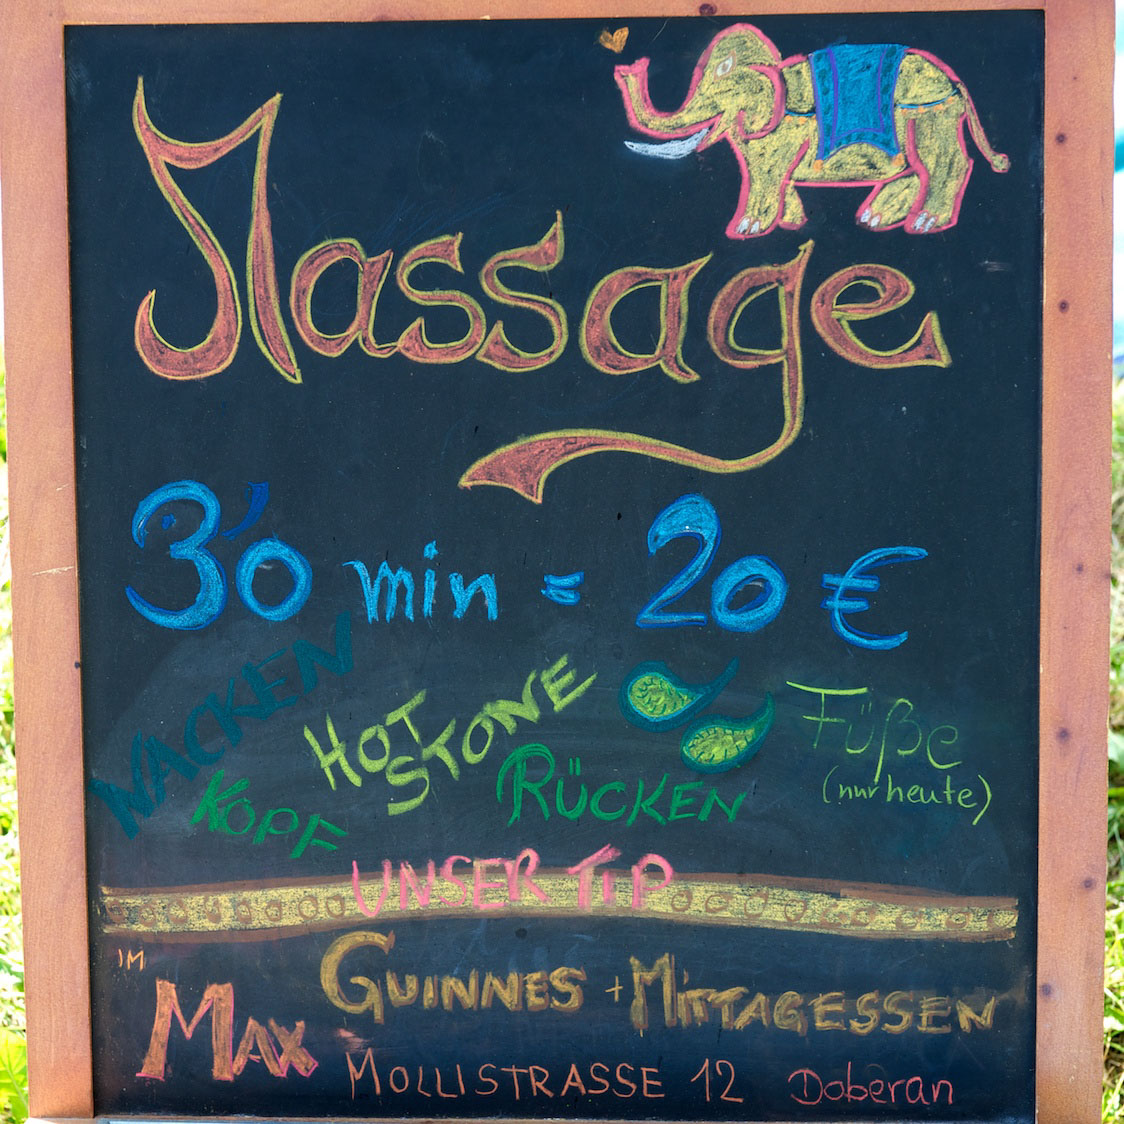 Massage
30 min = 20 €
NACKEN
HOT STONE
Füße
(nur heute)
KOPF
RÜCKEN
UNSER TIP
IM
MAX
GUINNES + MITTAGESSEN
MOLLISTRASSE 12 Doberan